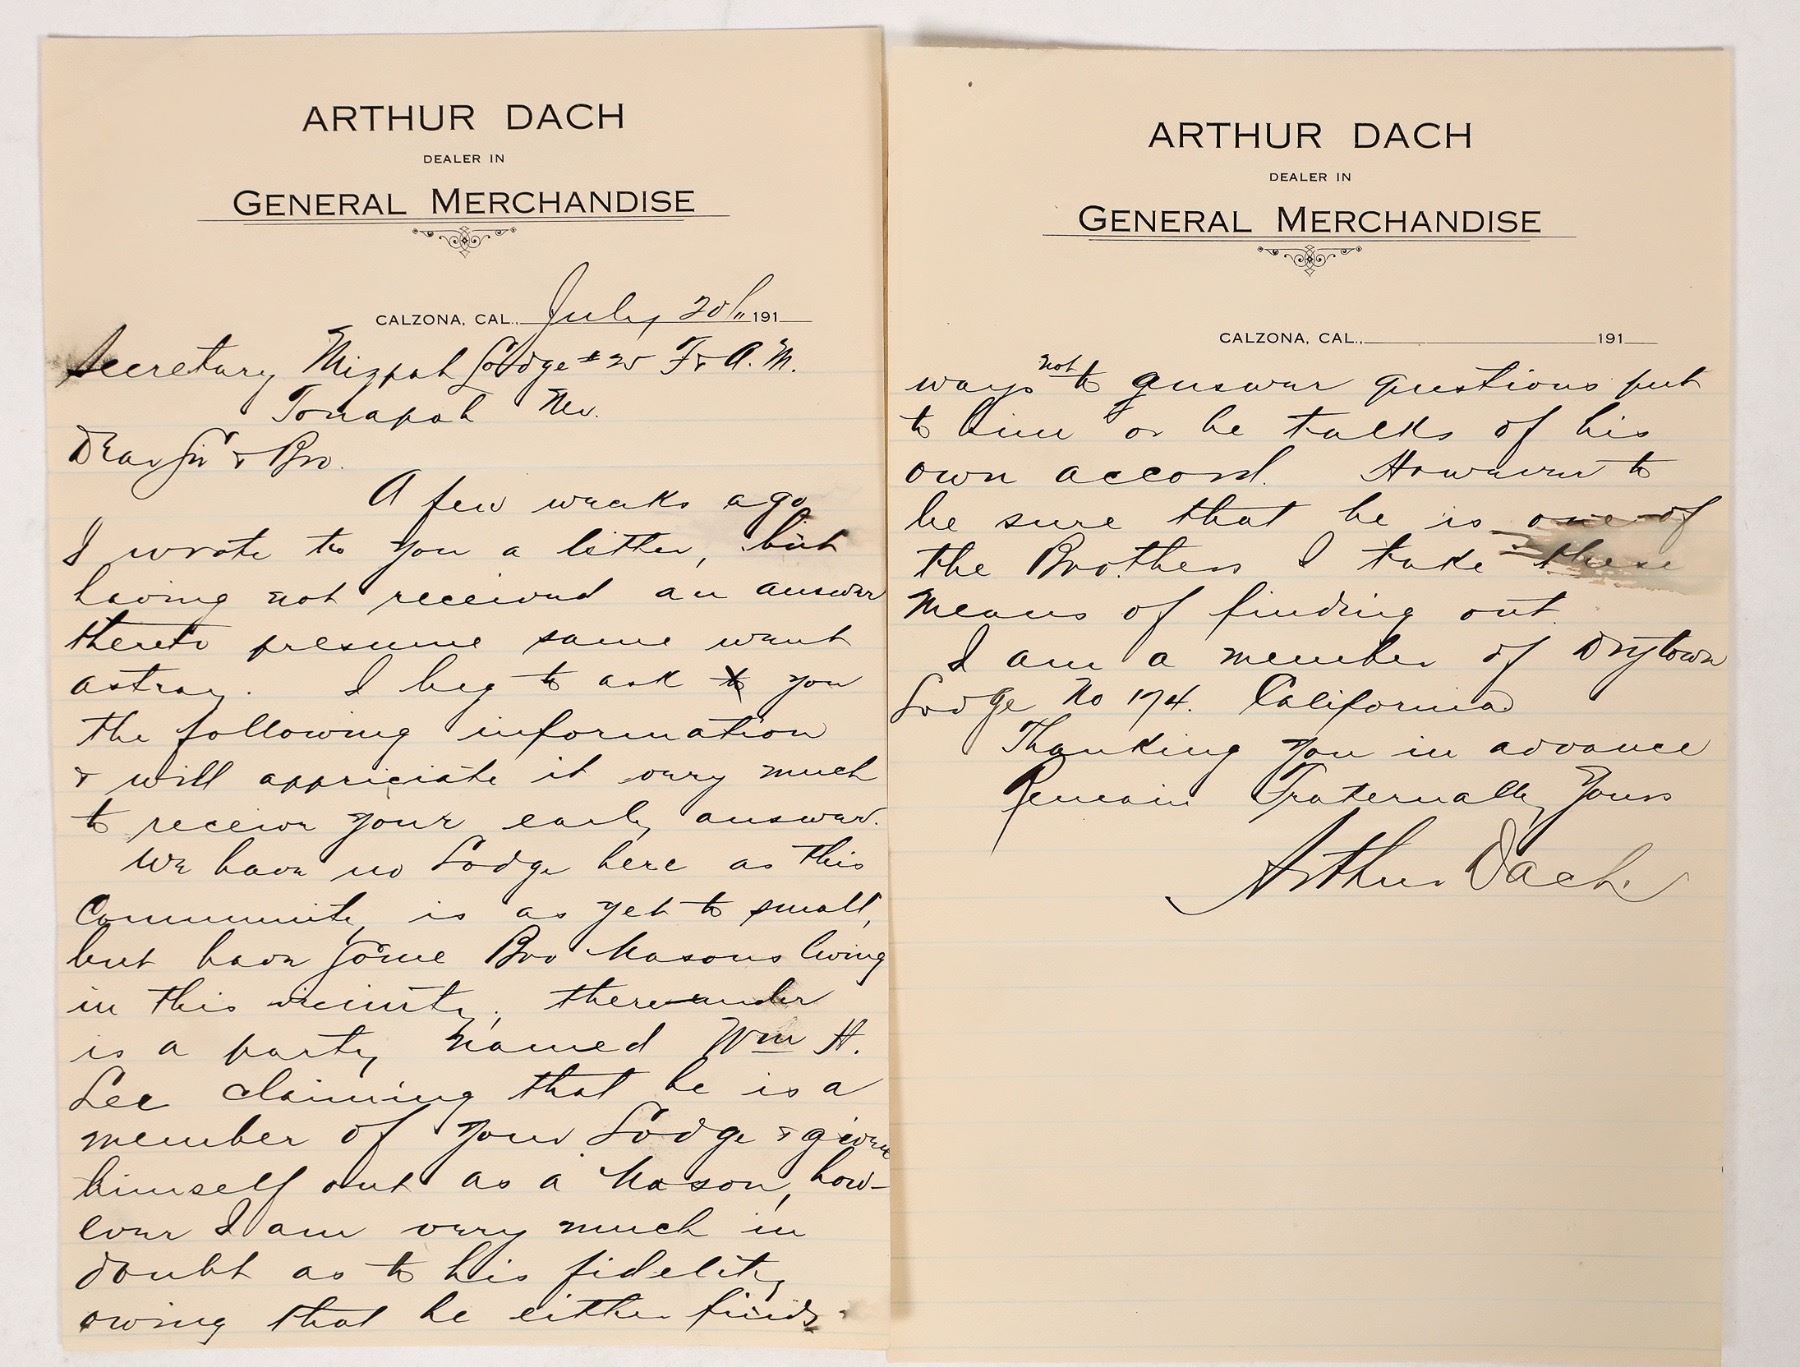 ARTHUR DACH
DEALER IN
GENERAL MERCHANDISE
CALZONA, CAL., July 20th 191
Secretary Mizpah Lodge # 25 F & A. M.
Tonapah Nev.
Dear Sir & Bro.
A few weeks ago
I wrote to you a letter, but
having not received an answer
thereto presume same want
astray. I beg to ask to you
the following information
& will appriciate it very much
to receive your early answer.
We have no Lodge here as this
Community is as yet to small,
but have some Bro Masons living
in this vicinity, thereunder
is a party named Wm H.
Lee claiming that he is a
member of your Lodge & given
himself out as a Mason, how-
ever I am very much in
doubt as to his fidelity
owing that he either finds
ARTHUR DACH
DEALER IN
GENERAL MERCHANDISE
CALZONA, CAL., 191
ways not to answer questions put
to him or he talks of his
own accord. However to
be sure that he is one of
the Brothers I take these
means of finding out.
I am a member of Drytown
Lodge No 174. California
Thanking you in advance
Remain Fraternally Yours
Arthur Dach.